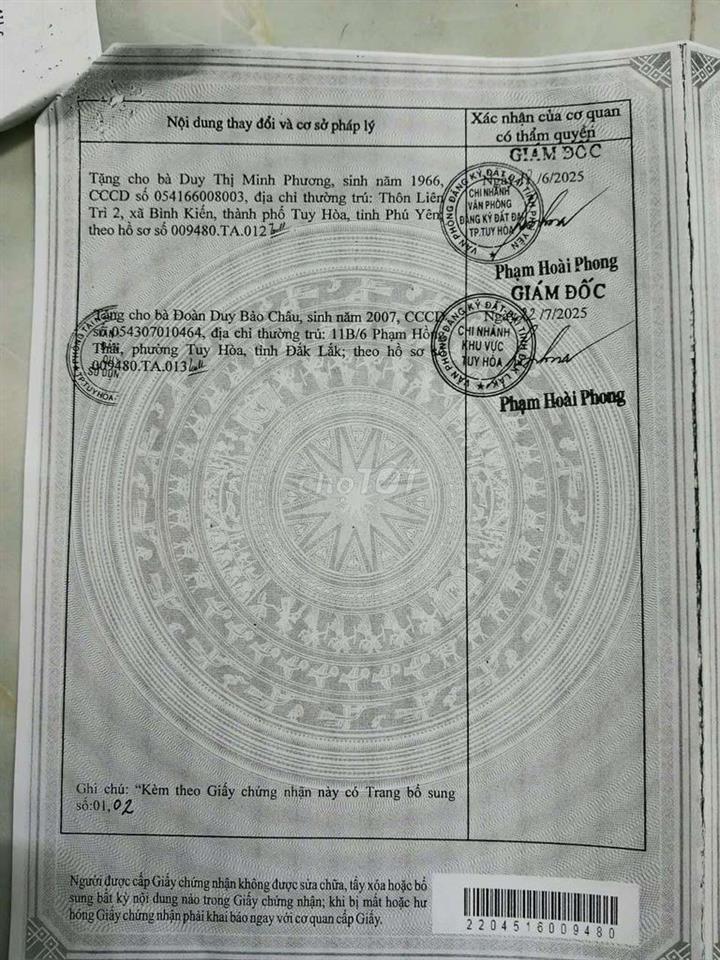 Nội dung thay đổi và cơ sở pháp lý
Xác nhận của cơ quan
có thẩm quyền
Tặng cho bà Duy Thị Minh Phương, sinh năm 1966,
CCCD số 054166008003, địa chỉ thường trú: Thôn Liên
Trì 2, xã Bình Kiến, thành phố Tuy Hòa, tỉnh Phú Yên
theo hồ sơ số 009480.TA.012
GIÁM ĐỐC
/6/2025
VĂN PHÒNG ĐĂNG KÝ ĐẤT ĐAI TỈNH PHÚ YÊN
CHI NHÁNH
VĂN PHÒNG
ĐĂNG KÝ ĐẤT ĐAI
TP.TUY HÒA
Phạm Hoài Phong
Tặng cho bà Đoàn Duy Bảo Châu, sinh năm 2007, CCCD
số 054307010464, địa chỉ thường trú: 11B/6 Phạm Hồng
Thái, phường Tuy Hòa, tỉnh Đắk Lắk; theo hồ sơ
009480.TA.013
GIÁM ĐỐC
2/7/2025
VĂN PHÒNG ĐĂNG KÝ ĐẤT ĐAI TỈNH ĐẮK LẮK
CHI NHÁNH
KHU VỰC
TUY HÒA
Phạm Hoài Phong
TP.TUY HÒA
chợTỐT
Ghi chú: “Kèm theo Giấy chứng nhận này có Trang bổ sung
số:01,02
Người được cấp Giấy chứng nhận không được sửa chữa, tẩy xóa hoặc bổ
sung bất kỳ nội dung nào trong Giấy chứng nhận; khi bị mất hoặc hư
hỏng Giấy chứng nhận phải khai báo ngay với cơ quan cấp Giấy.
2204516009480